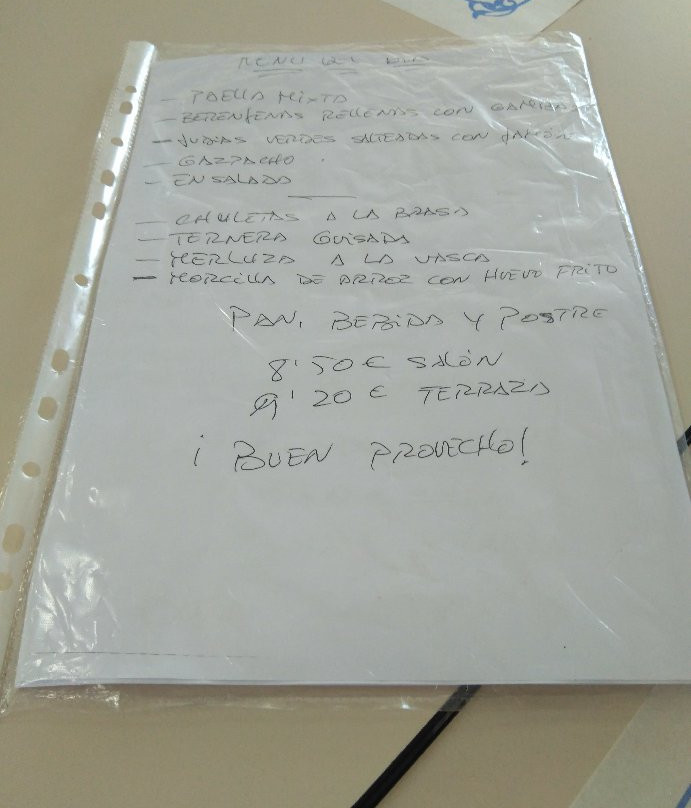 MENU DEL DIA
- PAELLA MIXTA
- BERENJENAS RELLENAS CON GAMBAS
- JUDIAS VERDES SALTEADAS CON JAMÓN
- GAZPACHO
- ENSALADA
- CHULETAS A LA BRASA
- TERNERA GUISADA
- MERLUZA A LA VASCA
- MORCILLA DE ARROZ CON HUEVO FRITO
PAN, BEBIDA Y POSTRE
8'50€ SALÓN
9'20€ TERRAZA
¡BUEN PROVECHO!